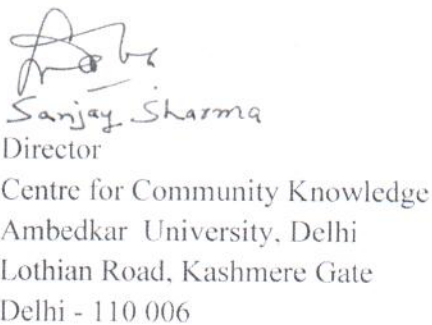 Sanjay Sharma
Director
Centre for Community Knowledge
Ambedkar University, Delhi
Lothian Road, Kashmere Gate
Delhi - 110 006